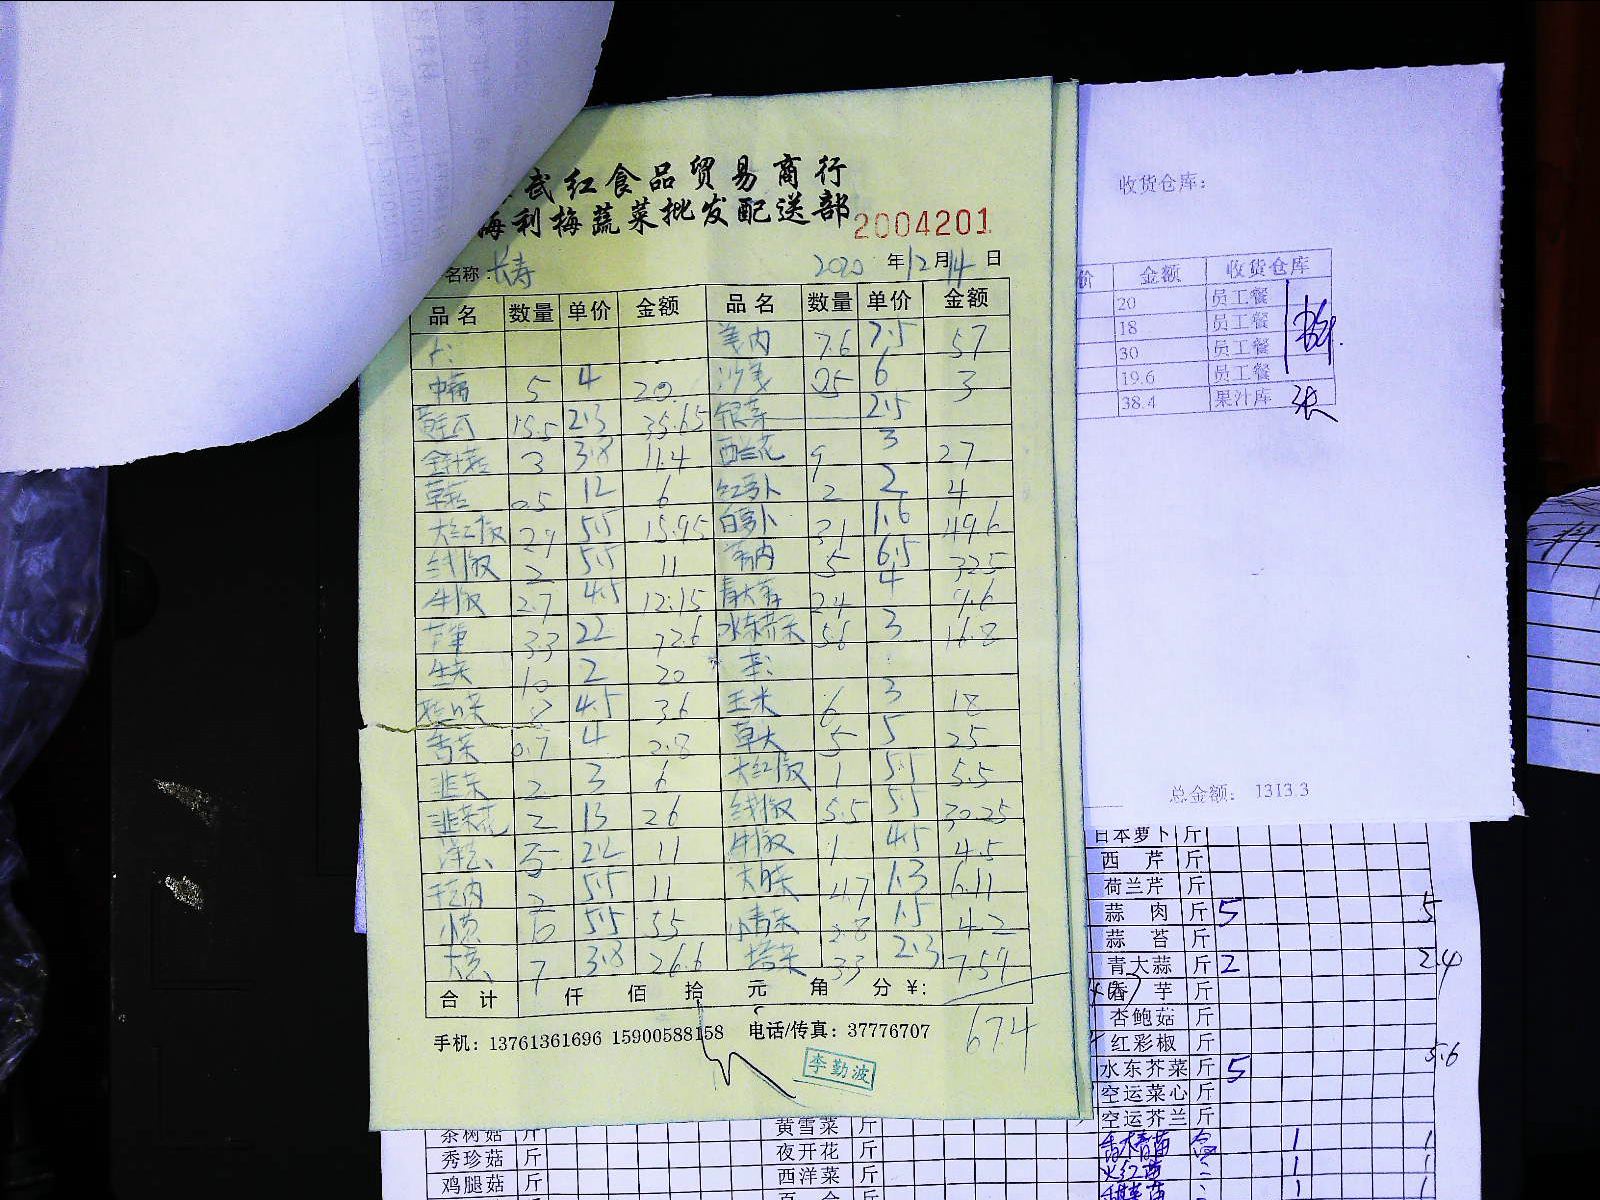 武红食品贸易商行
海利梅蔬菜批发配送部 2004201
名称：长寿 2020 年 12 月 14 日
品名 数量 单价 金额 品名 数量 单价 金额
姜肉 7.6 7.5 57
5 4 20 沙姜 0.5 6 3
15.5 2.3 35.65 银芽 2.5
金针菇 3 3.8 11.4 西兰花 9 3 27
草菇 0.5 12 6 红萝卜 2 2 4
大红椒 2.9 5.5 15.95 白萝卜 31 1.6 49.6
线椒 2 5.5 11 5 6.5 32.5
牛椒 2.7 4.5 12.15 青大蒜 2.4 4 9.6
芦笋 3.3 22 72.6 水东芥菜 5.6 3 16.8
生菜 10 2 20
8 4.5 36 玉米 6 3 18
香菜 0.7 4 2.8 草大 5 5 25
韭菜 2 3 6 大红椒 1 5.5 5.5
韭菜花 2 13 26 线椒 5.5 5.5 30.25
洋葱 5 2.2 11 牛椒 1 4.5 4.5
2 5.5 11 大白菜 4.7 1.3 6.11
小葱 10 5.5 55 小青菜 2.8 1.5 4.2
大葱 7 3.8 26.6 塔菜 3.3 2.3 7.59
合计 仟 佰 拾 元 角 分 ¥：
674
手机：13761361696 15900588158 电话/传真：37776707
李勤波
收货仓库：
价 金额 收货仓库
20 员工餐
18 员工餐
30 员工餐
19.6 员工餐
38.4 果汁库
张
总金额： 1313.3
日本萝卜 斤
西芹 斤
荷兰芹 斤
蒜肉 斤 5 5
蒜苔 斤
青大蒜 斤 2 2.4
香芋 斤
杏鲍菇 斤
红彩椒 斤
水东芥菜 斤 5 5.6
空运菜心 斤
空运芥兰 斤
茶树菇 斤 黄雪菜 斤
秀珍菇 斤 夜开花 斤 1 1
鸡腿菇 斤 西洋菜 斤 火红苗 1 1
百合 斤 1 1